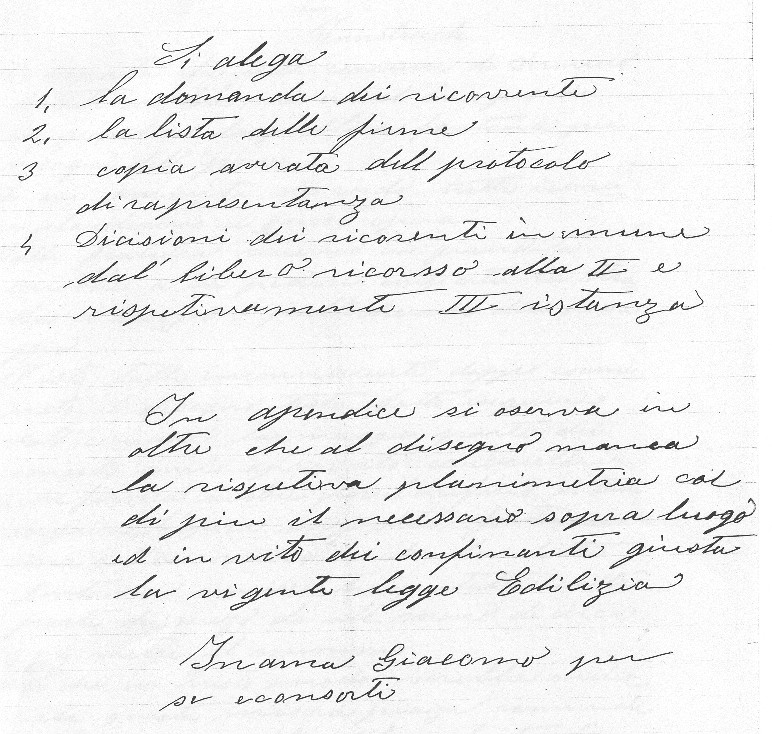 Si alega
1. la domanda dei ricorrente
2. la lista delle firme
3 copia averata dell protocolo
di rapresentanza
4 Dicisioni dei ricorenti in mune
dal' libero ricorso alla II e
rispetivamente III istanza
In apendice si oserva in
oltre che al disegno manca
la rispetiva planimetria col
di piu il necessario sopra luogo
ed in vito dei confinanti giusta
la vigente legge Edilizia
Inama Giacomo per
se econsorti